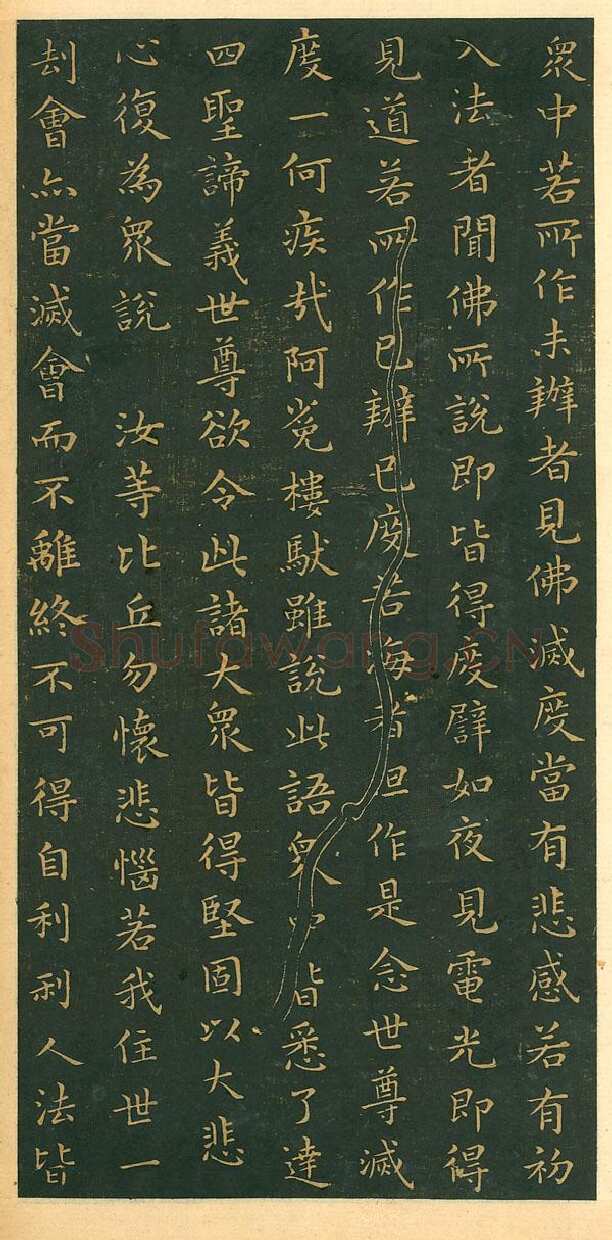 衆中若所作未辦者見佛滅度當有悲感若有初
入法者聞佛所說即皆得度譬如夜見電光即得
見道若所作已辦已度苦海者但作是念世尊滅
度一何疾哉阿㝹樓馱雖說此語衆中皆悉了達
四聖諦義世尊欲令此諸大衆皆得堅固以大悲
心復為衆說 汝等比丘勿懷悲惱若我住世一
刦會亦當滅會而不離終不可得自利利人法皆
Shufawang.CN